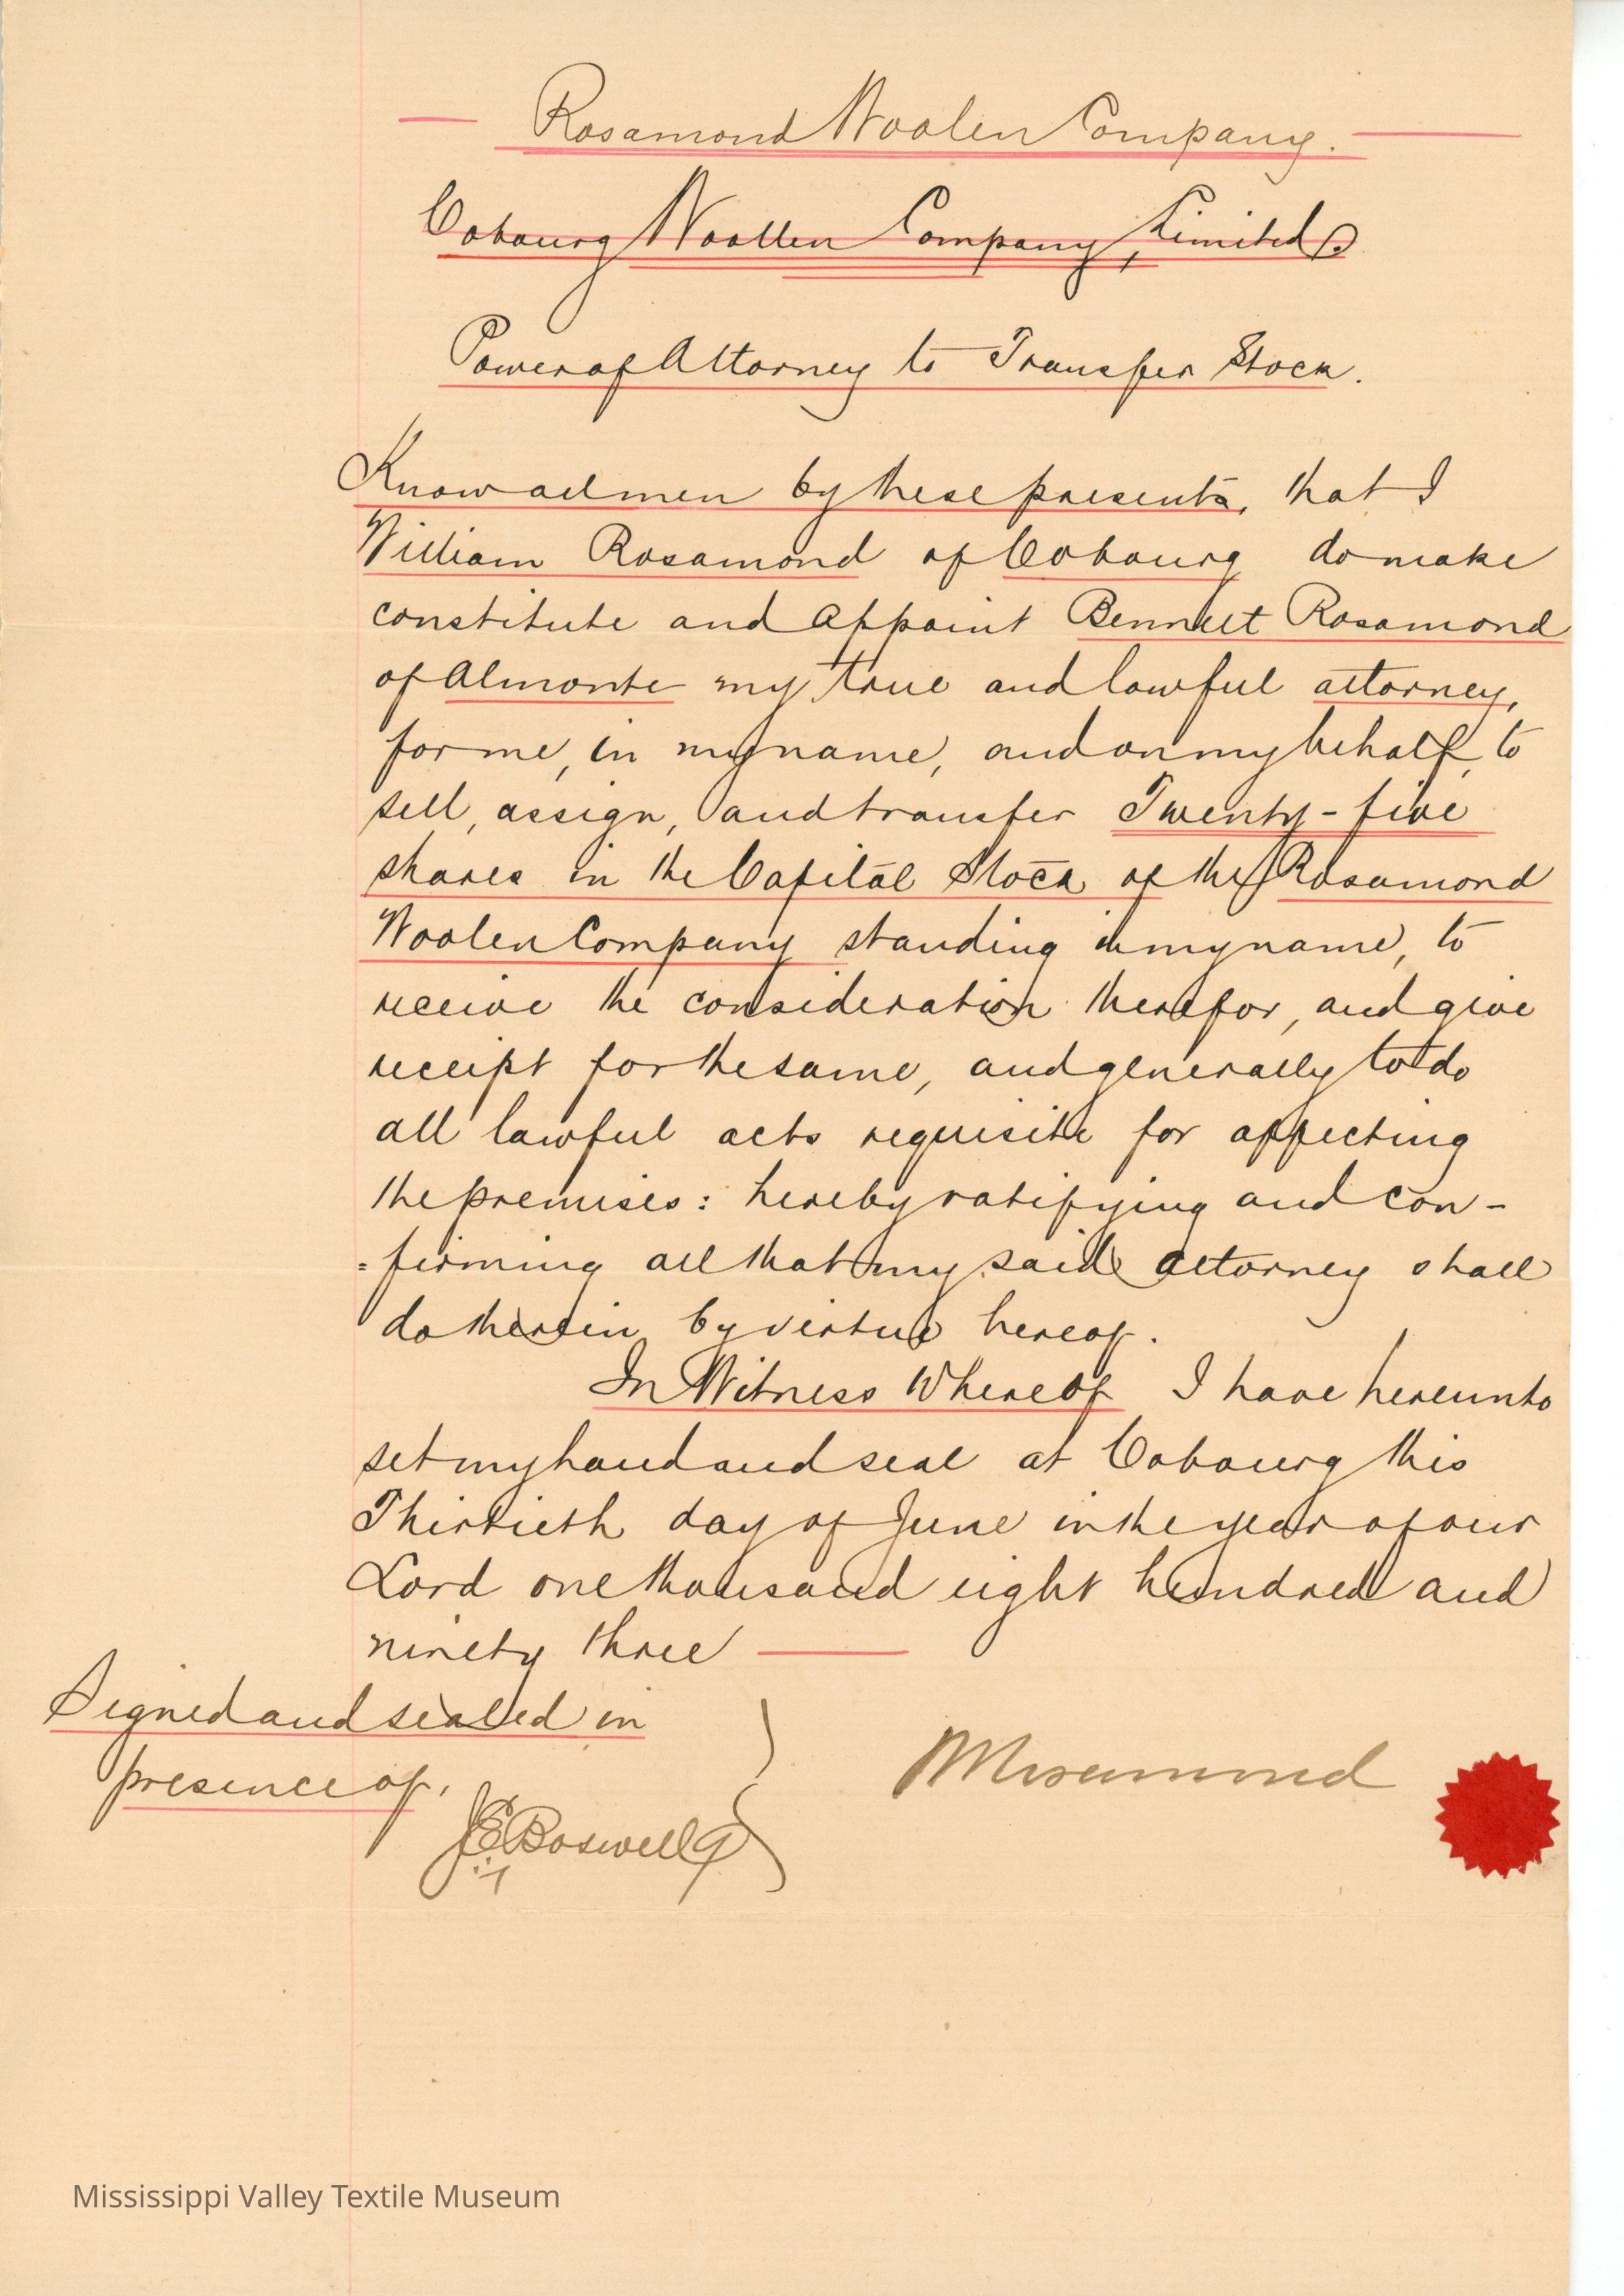 Rosamond Woolen Company.
Cobourg Woollen Company, Limited
Power of Attorney to Transfer Stock.
Know all men by these presents, that I
William Rosamond of Cobourg do make
constitute and appoint Bennett Rosamond
of Almonte my true and lawful attorney,
for me, in my name, and on my behalf, to
sell, assign, and transfer Twenty-five
shares in the Capital Stock of the Rosamond
Woolen Company standing in my name, to
receive the consideration therefor, and give
receipt for the same, and generally to do
all lawful acts requisite for affecting
the premises: hereby ratifying and con-
=firming all that my said attorney shall
do therein by virtue hereof.
In Witness Whereof I have hereunto
set my hand and seal at Cobourg this
Thirtieth day of June in the year of our
Lord one thousand eight hundred and
ninety three
Signed and sealed in
presence of,
JE Boswell
W Rosamond
Mississippi Valley Textile Museum